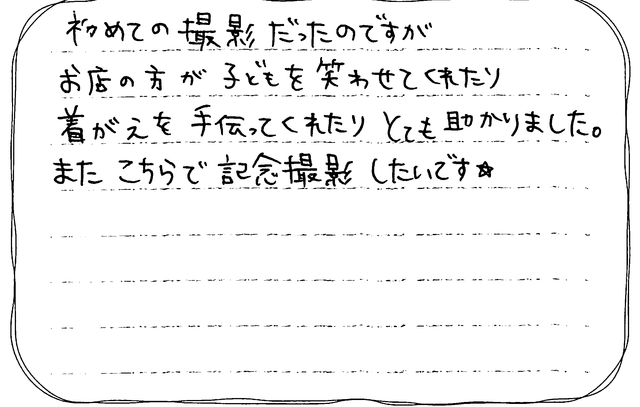 初めての撮影だったのですが
お店の方が子どもを笑わせてくれたり
着がえを手伝ってくれたりとても助かりました。
またこちらで記念撮影したいです☆